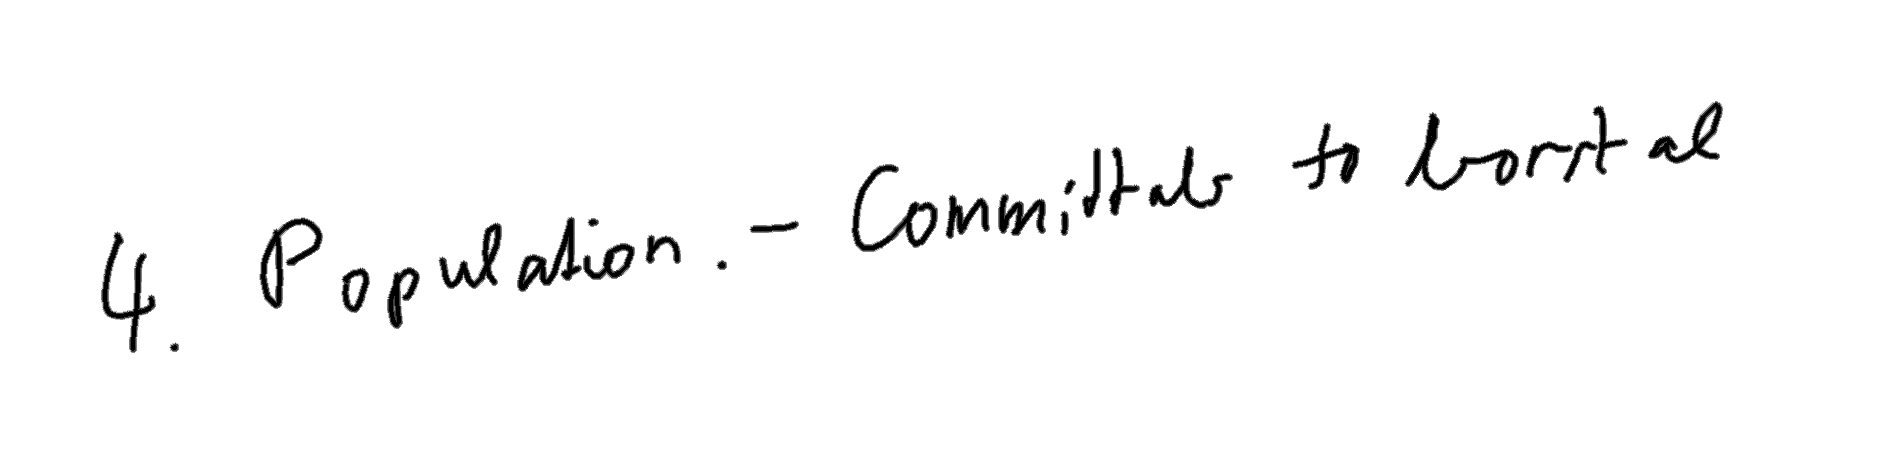 4. Population. - Committals to borstal